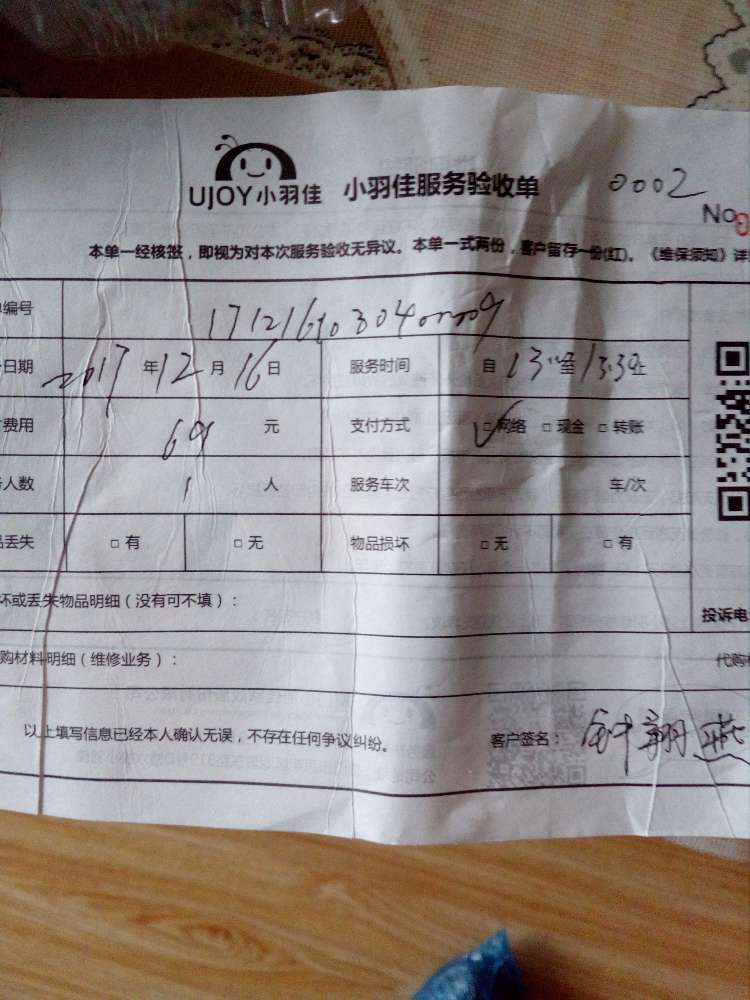 UJOY小羽佳 小羽佳服务验收单 0002
No
本单一经核签，即视为对本次服务验收无异议。本单一式两份，客户留存一份(红)。《维保须知》详
编号
日期 2017年12月16日 服务时间 自
费用 69 元 支付方式 □网络 □现金 □转账
人数 1 人 服务车次 车/次
丢失 □有 □无 物品损坏 □无 □有
坏或丢失物品明细（没有可不填）：
投诉电
购材料明细（维修业务）：
代购
以上填写信息已经本人确认无误，不存在任何争议纠纷。 客户签名：钟翔燕